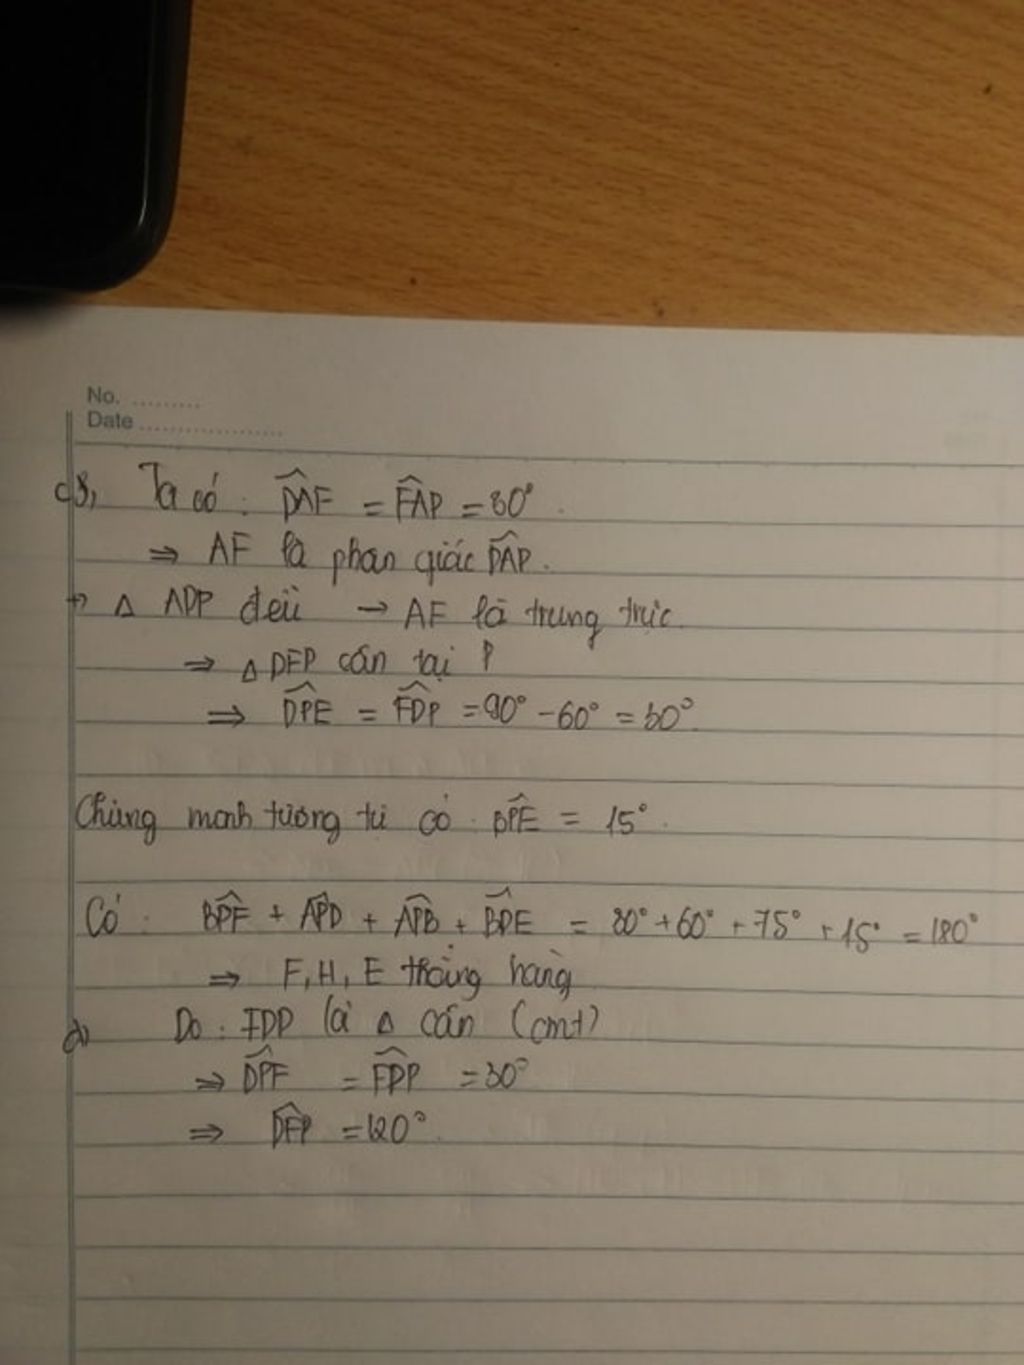 No. .........
Date ..................
c3, Ta có: DAF = FAP = 30°.
⇒ AF là phan giác DAP.
+> Δ ADP đeù → AF là trung trực.
⇒ Δ DFP cân tại P
⇒ DPE = FDP = 90° - 60° = 30°.
Chứng manh tương tự có: BPE = 15°.
Có: BPF + APD + APB + BPE = 30° + 60° + 75° + 15° = 180°
⇒ F, H, E thẳng hàng
Do: FDP là Δ cân (cmt)
⇒ DPF = FDP = 30°
⇒ DFP = 120°.